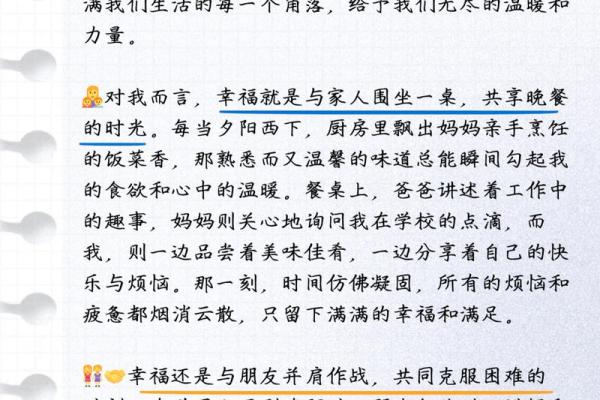 满我们生活的每一个角落，给予我们无尽的温暖和
力量。
👩‍👧对我而言，幸福就是与家人围坐一桌，共享晚餐
的时光。每当夕阳西下，厨房里飘出妈妈亲手烹饪
的饭菜香，那熟悉而又温馨的味道总能瞬间勾起我
的食欲和心中的温暖。餐桌上，爸爸讲述着工作中
的趣事，妈妈则关心地询问我在学校的点滴，而
我，则一边品尝着美味佳肴，一边分享着自己的快
乐与烦恼。那一刻，时间仿佛凝固，所有的烦恼和
疲惫都烟消云散，只留下满满的幸福和满足。
👭🤝幸福还是与朋友并肩作战，共同克服困难的